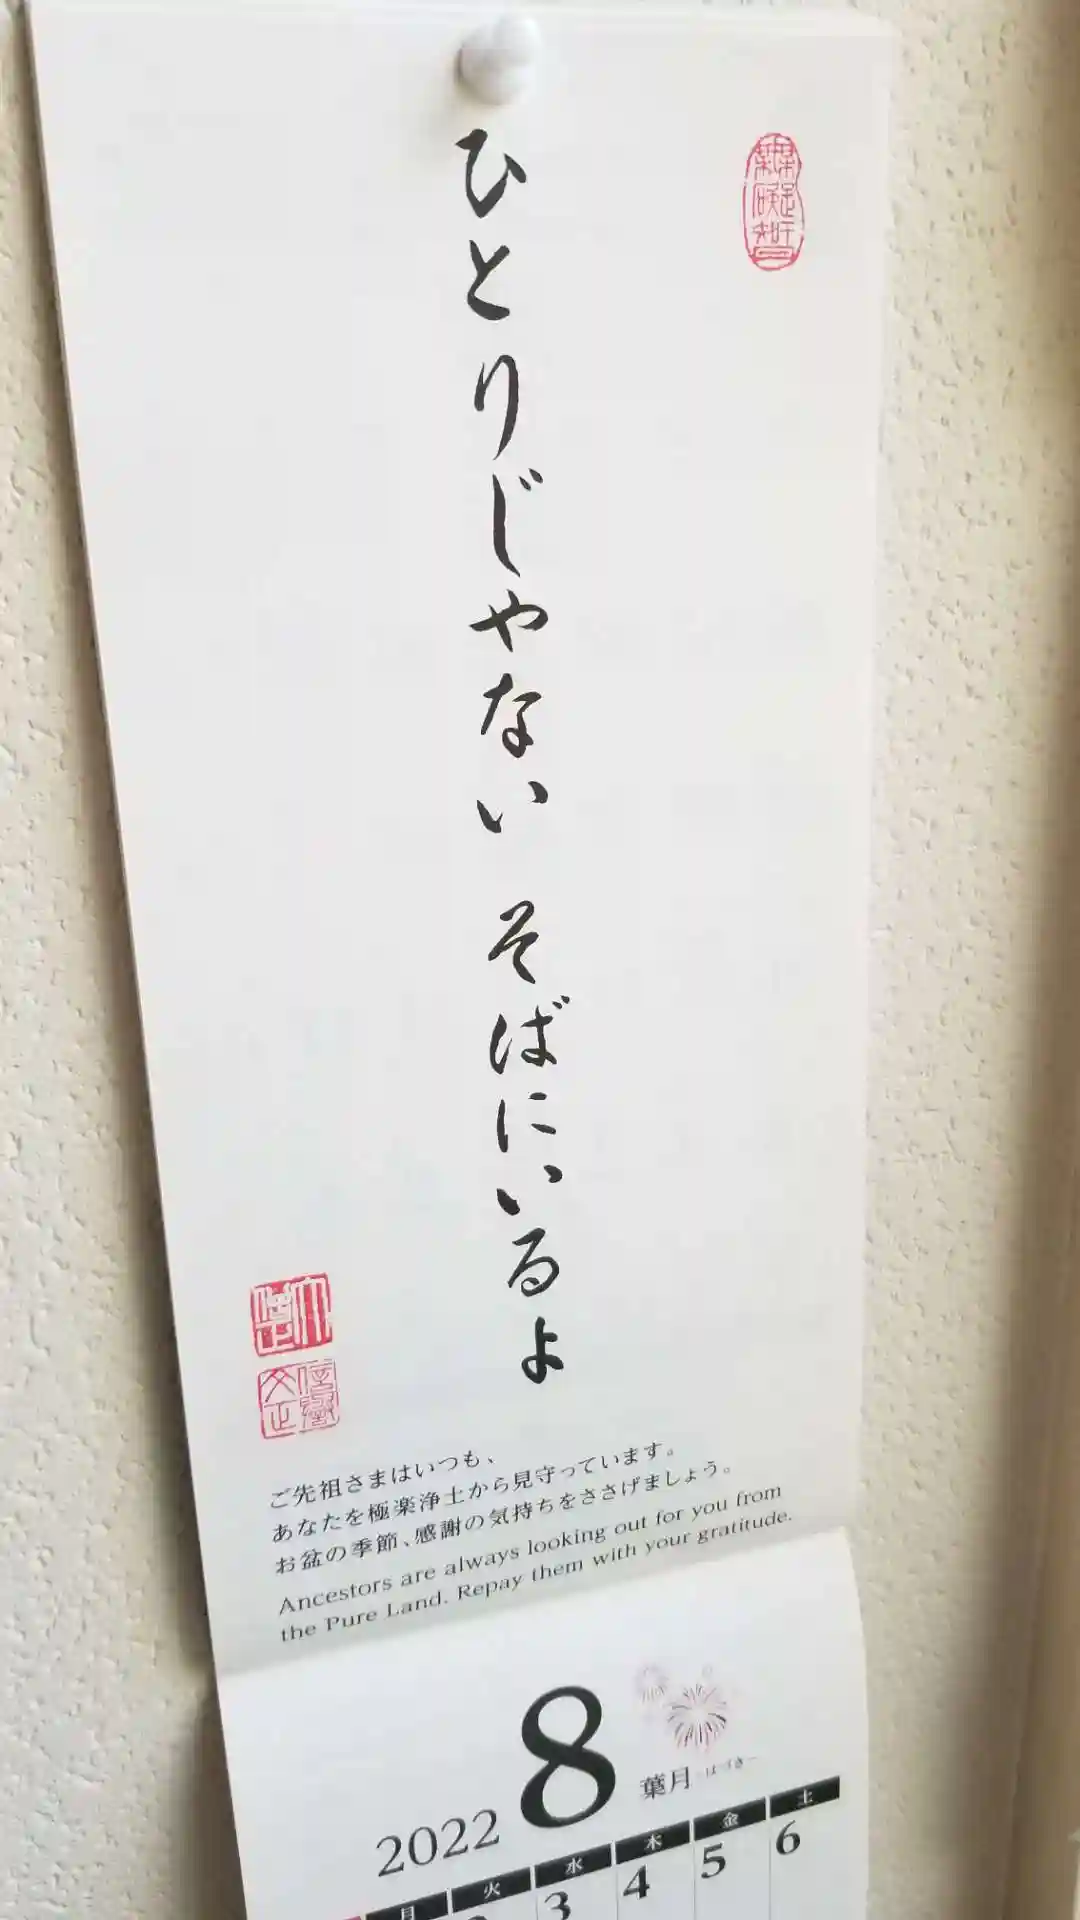 ひとりじゃない そばにいるよ
ご先祖さまはいつも、
あなたを極楽浄土から見守っています。
お盆の季節、感謝の気持ちをささげましょう。
Ancestors are always looking out for you from
the Pure Land. Repay them with your gratitude.
2022 8 葉月 -はづき-
月 火 水 木 金 土
3 4 5 6